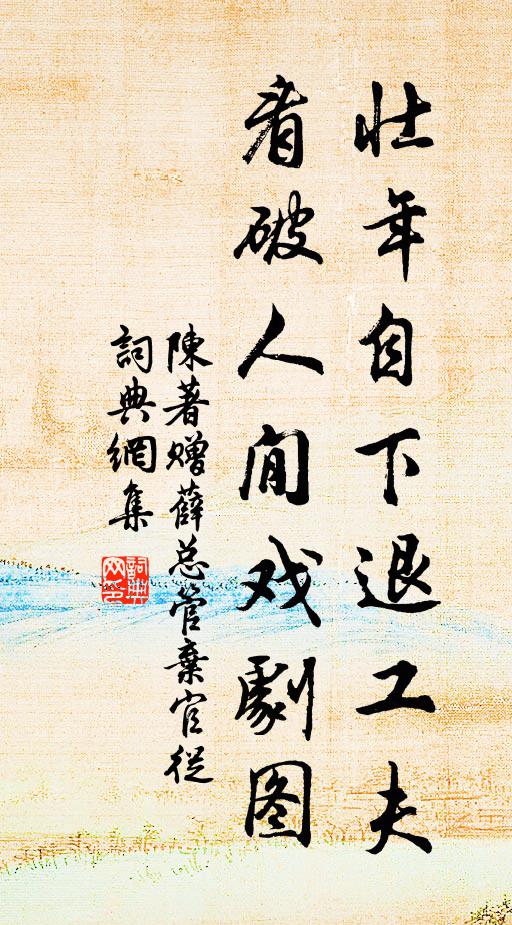 壮年自下退工夫
看破人间戏劇图
陳著赠薛总管棄官從
詞典網集
詞典网印